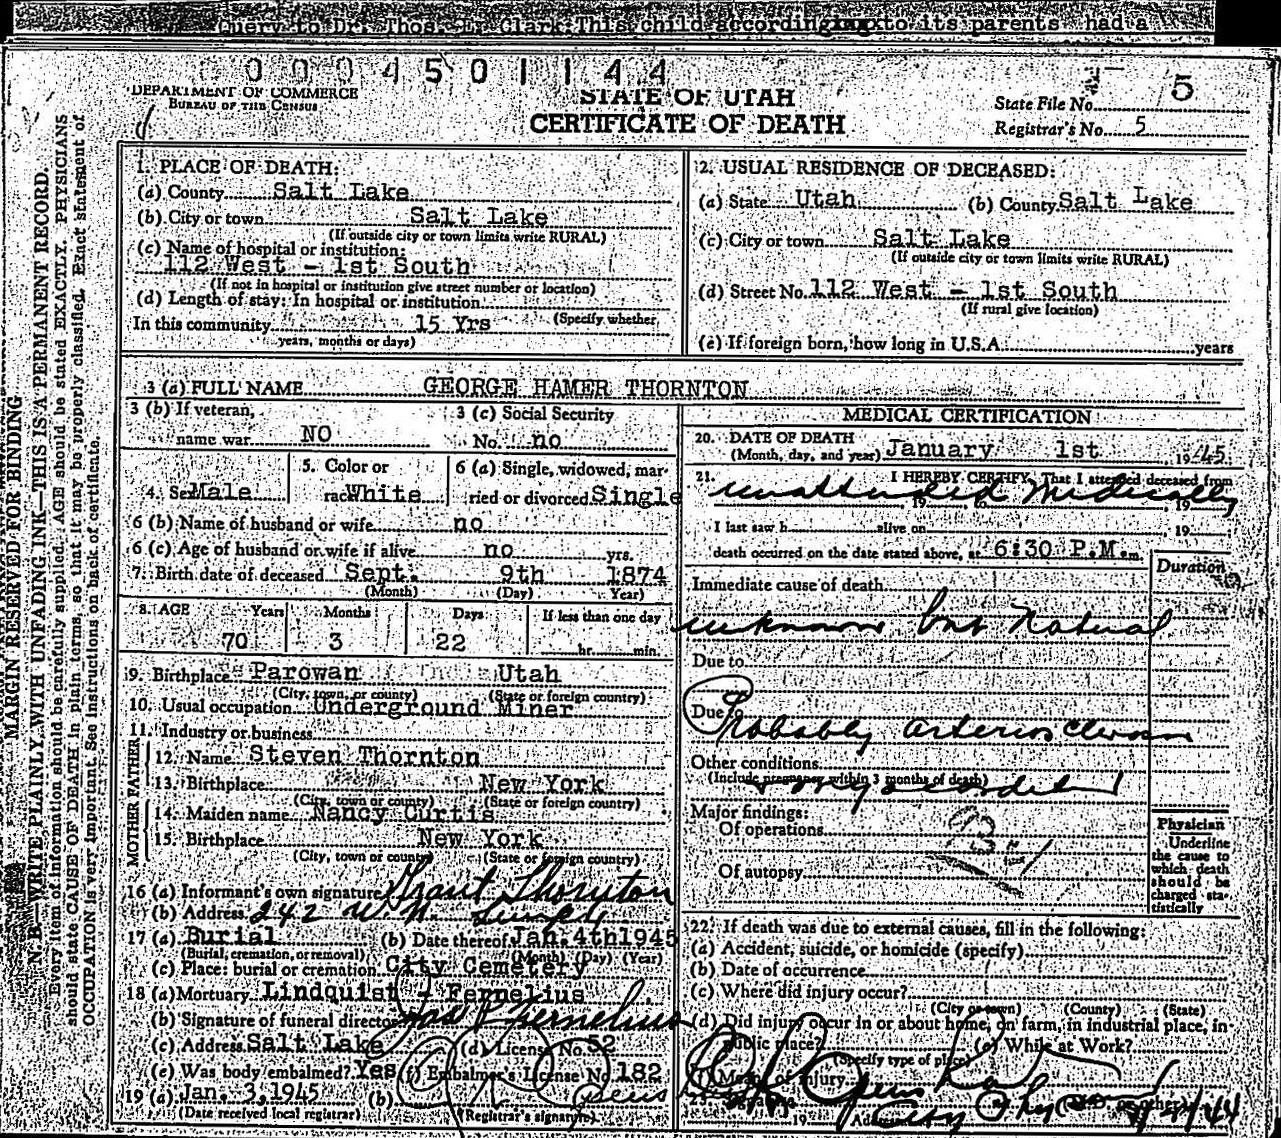 Query to Dr. Thos. E. Clark: This child according to its parents had a
0 0 0 4 5 0 1 1 4 4
DEPARTMENT OF COMMERCE
BUREAU OF THE CENSUS
STATE OF UTAH
CERTIFICATE OF DEATH
State File No. 5
Registrar's No. 5
MARGIN RESERVED FOR BINDING
N. B.—WRITE PLAINLY WITH UNFADING INK—THIS IS A PERMANENT RECORD.
Every item of information should be carefully supplied. AGE should be stated EXACTLY. PHYSICIANS
should state CAUSE OF DEATH in plain terms, so that it may be properly classified. Exact statement of
OCCUPATION is very important. See instructions on back of certificate.
1. PLACE OF DEATH:
(a) County Salt Lake
(b) City or town Salt Lake
(If outside city or town limits write RURAL)
(c) Name of hospital or institution:
112 West - 1st South
(If not in hospital or institution give street number or location)
(d) Length of stay: In hospital or institution
(Specify whether
In this community 15 Yrs
years, months or days)
2. USUAL RESIDENCE OF DECEASED:
(a) State Utah (b) County Salt Lake
(c) City or town Salt Lake
(If outside city or town limits write RURAL)
(d) Street No. 112 West - 1st South
(If rural give location)
(e) If foreign born, how long in U.S.A. years
3 (a) FULL NAME GEORGE HAMER THORNTON
3 (b) If veteran,
name war NO
3 (c) Social Security
No. no
4. Sex Male
5. Color or
race White
6 (a) Single, widowed, mar-
ried or divorced Single
6 (b) Name of husband or wife no
6 (c) Age of husband or wife if alive no yrs.
7. Birth date of deceased Sept. 9th 1874
(Month) (Day) (Year)
8. AGE Years Months Days If less than one day
70 3 22 hr. min.
9. Birthplace Parowan Utah
(City, town, or county) (State or foreign country)
10. Usual occupation Underground Miner
11. Industry or business
MOTHER FATHER
12. Name Steven Thornton
13. Birthplace New York
(City, town or county) (State or foreign country)
14. Maiden name Nancy Curtis
15. Birthplace New York
(City, town or county) (State or foreign country)
16 (a) Informant's own signature Grant Thornton
(b) Address 242 W. N. Temple
17 (a) Burial (b) Date thereof Jan. 4th 1945
(Burial, cremation, or removal) (Month) (Day) (Year)
(c) Place: burial or cremation City Cemetery
18 (a) Mortuary Lindquist - Fernelius
(b) Signature of funeral director Fernelius
(c) Address Salt Lake (d) License No. 52
(e) Was body embalmed? Yes (f) Embalmer's License No. 182
19 (a) Jan. 3, 1945 (b)
(Date received local registrar) (Registrar's signature)
MEDICAL CERTIFICATION
20. DATE OF DEATH
(Month, day, and year) January 1st 1945
21. I HEREBY CERTIFY, That I attended deceased from
unattended Medically
, 19 , to , 19
I last saw h alive on , 19
death occurred on the date stated above, at 6:30 P.M m.
Duration
Immediate cause of death
unknown but Natural
Due to
Due
Probably arterio sclerosis
Other conditions
(Include pregnancy within 3 months of death)
Major findings:
Of operations
Of autopsy
Physician
Underline
the cause to
which death
should be
charged sta-
tistically
22. If death was due to external causes, fill in the following:
(a) Accident, suicide, or homicide (specify)
(b) Date of occurrence
(c) Where did injury occur?
(City or town) (County) (State)
(d) Did injury occur in or about home, on farm, in industrial place, in
public place? (e) While at Work?
(Specify type of place)
(f) Means of injury
City Phy
19 Address